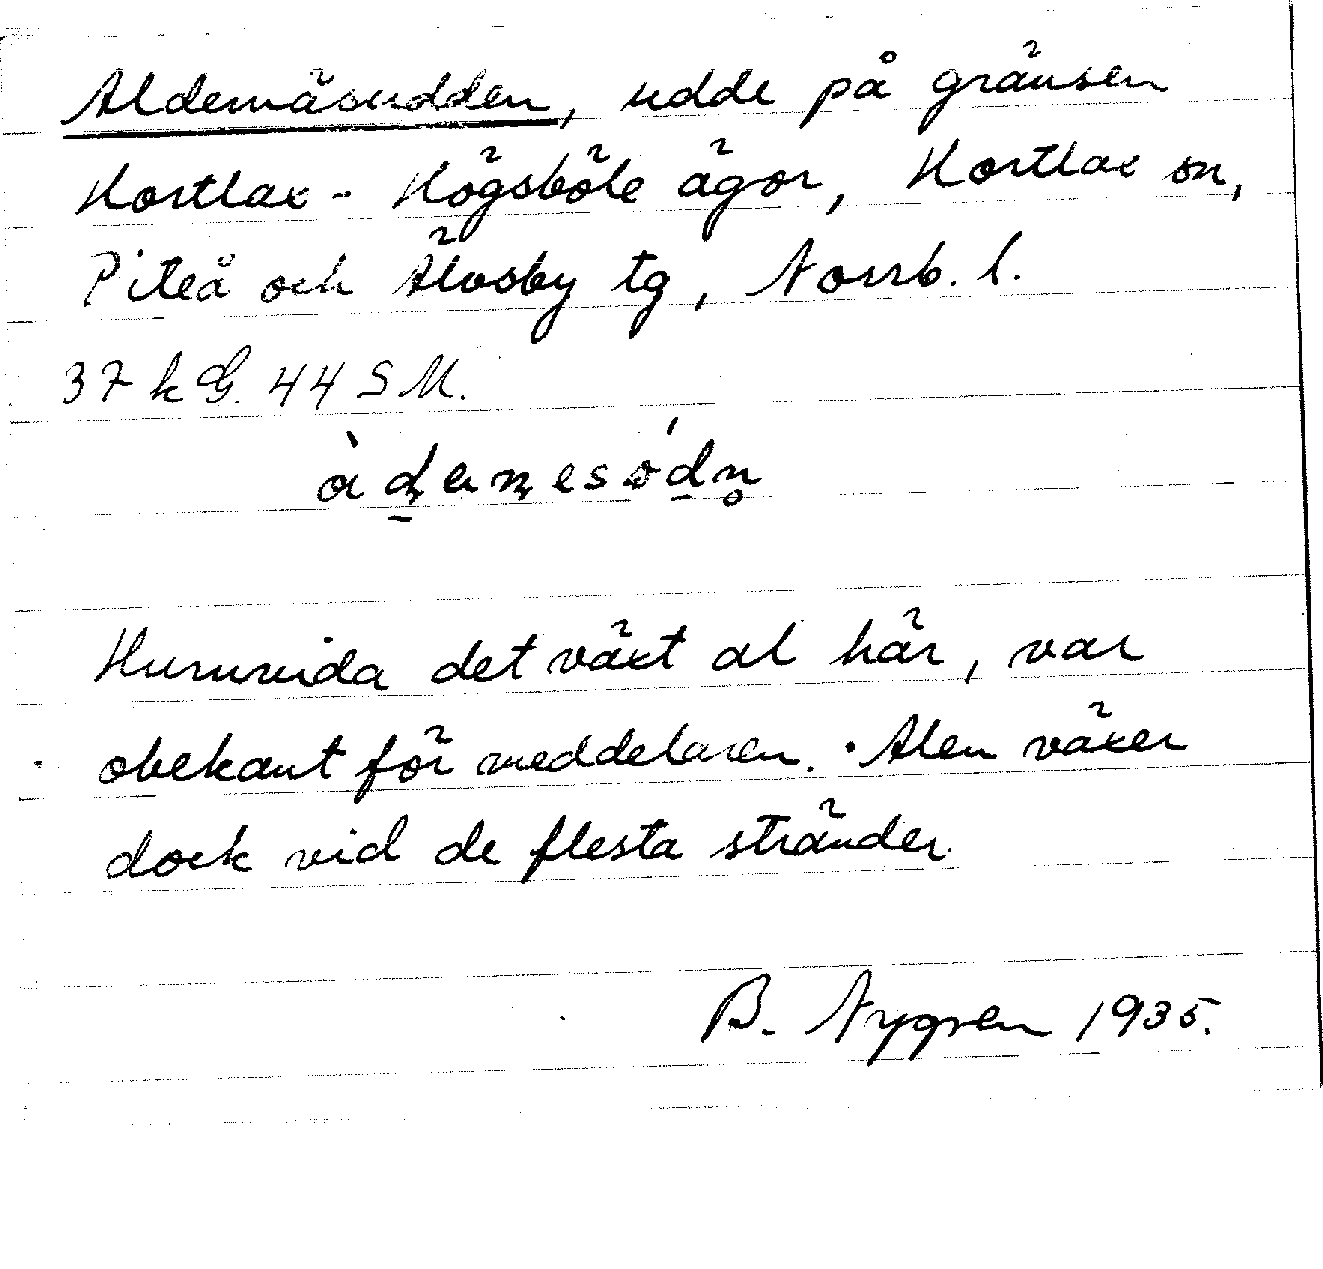 Aldernäsudden, udde på gränsen
Hortlax - Högsböle ägor, Hortlax sn,
Piteå och Älvsby tg, Norrb. l.
37 k G. 44 S M.
Huruvida det växt al här, var
obekant för meddelaren. Alen växer
dock vid de flesta stränder.
B. Nygren 1935.